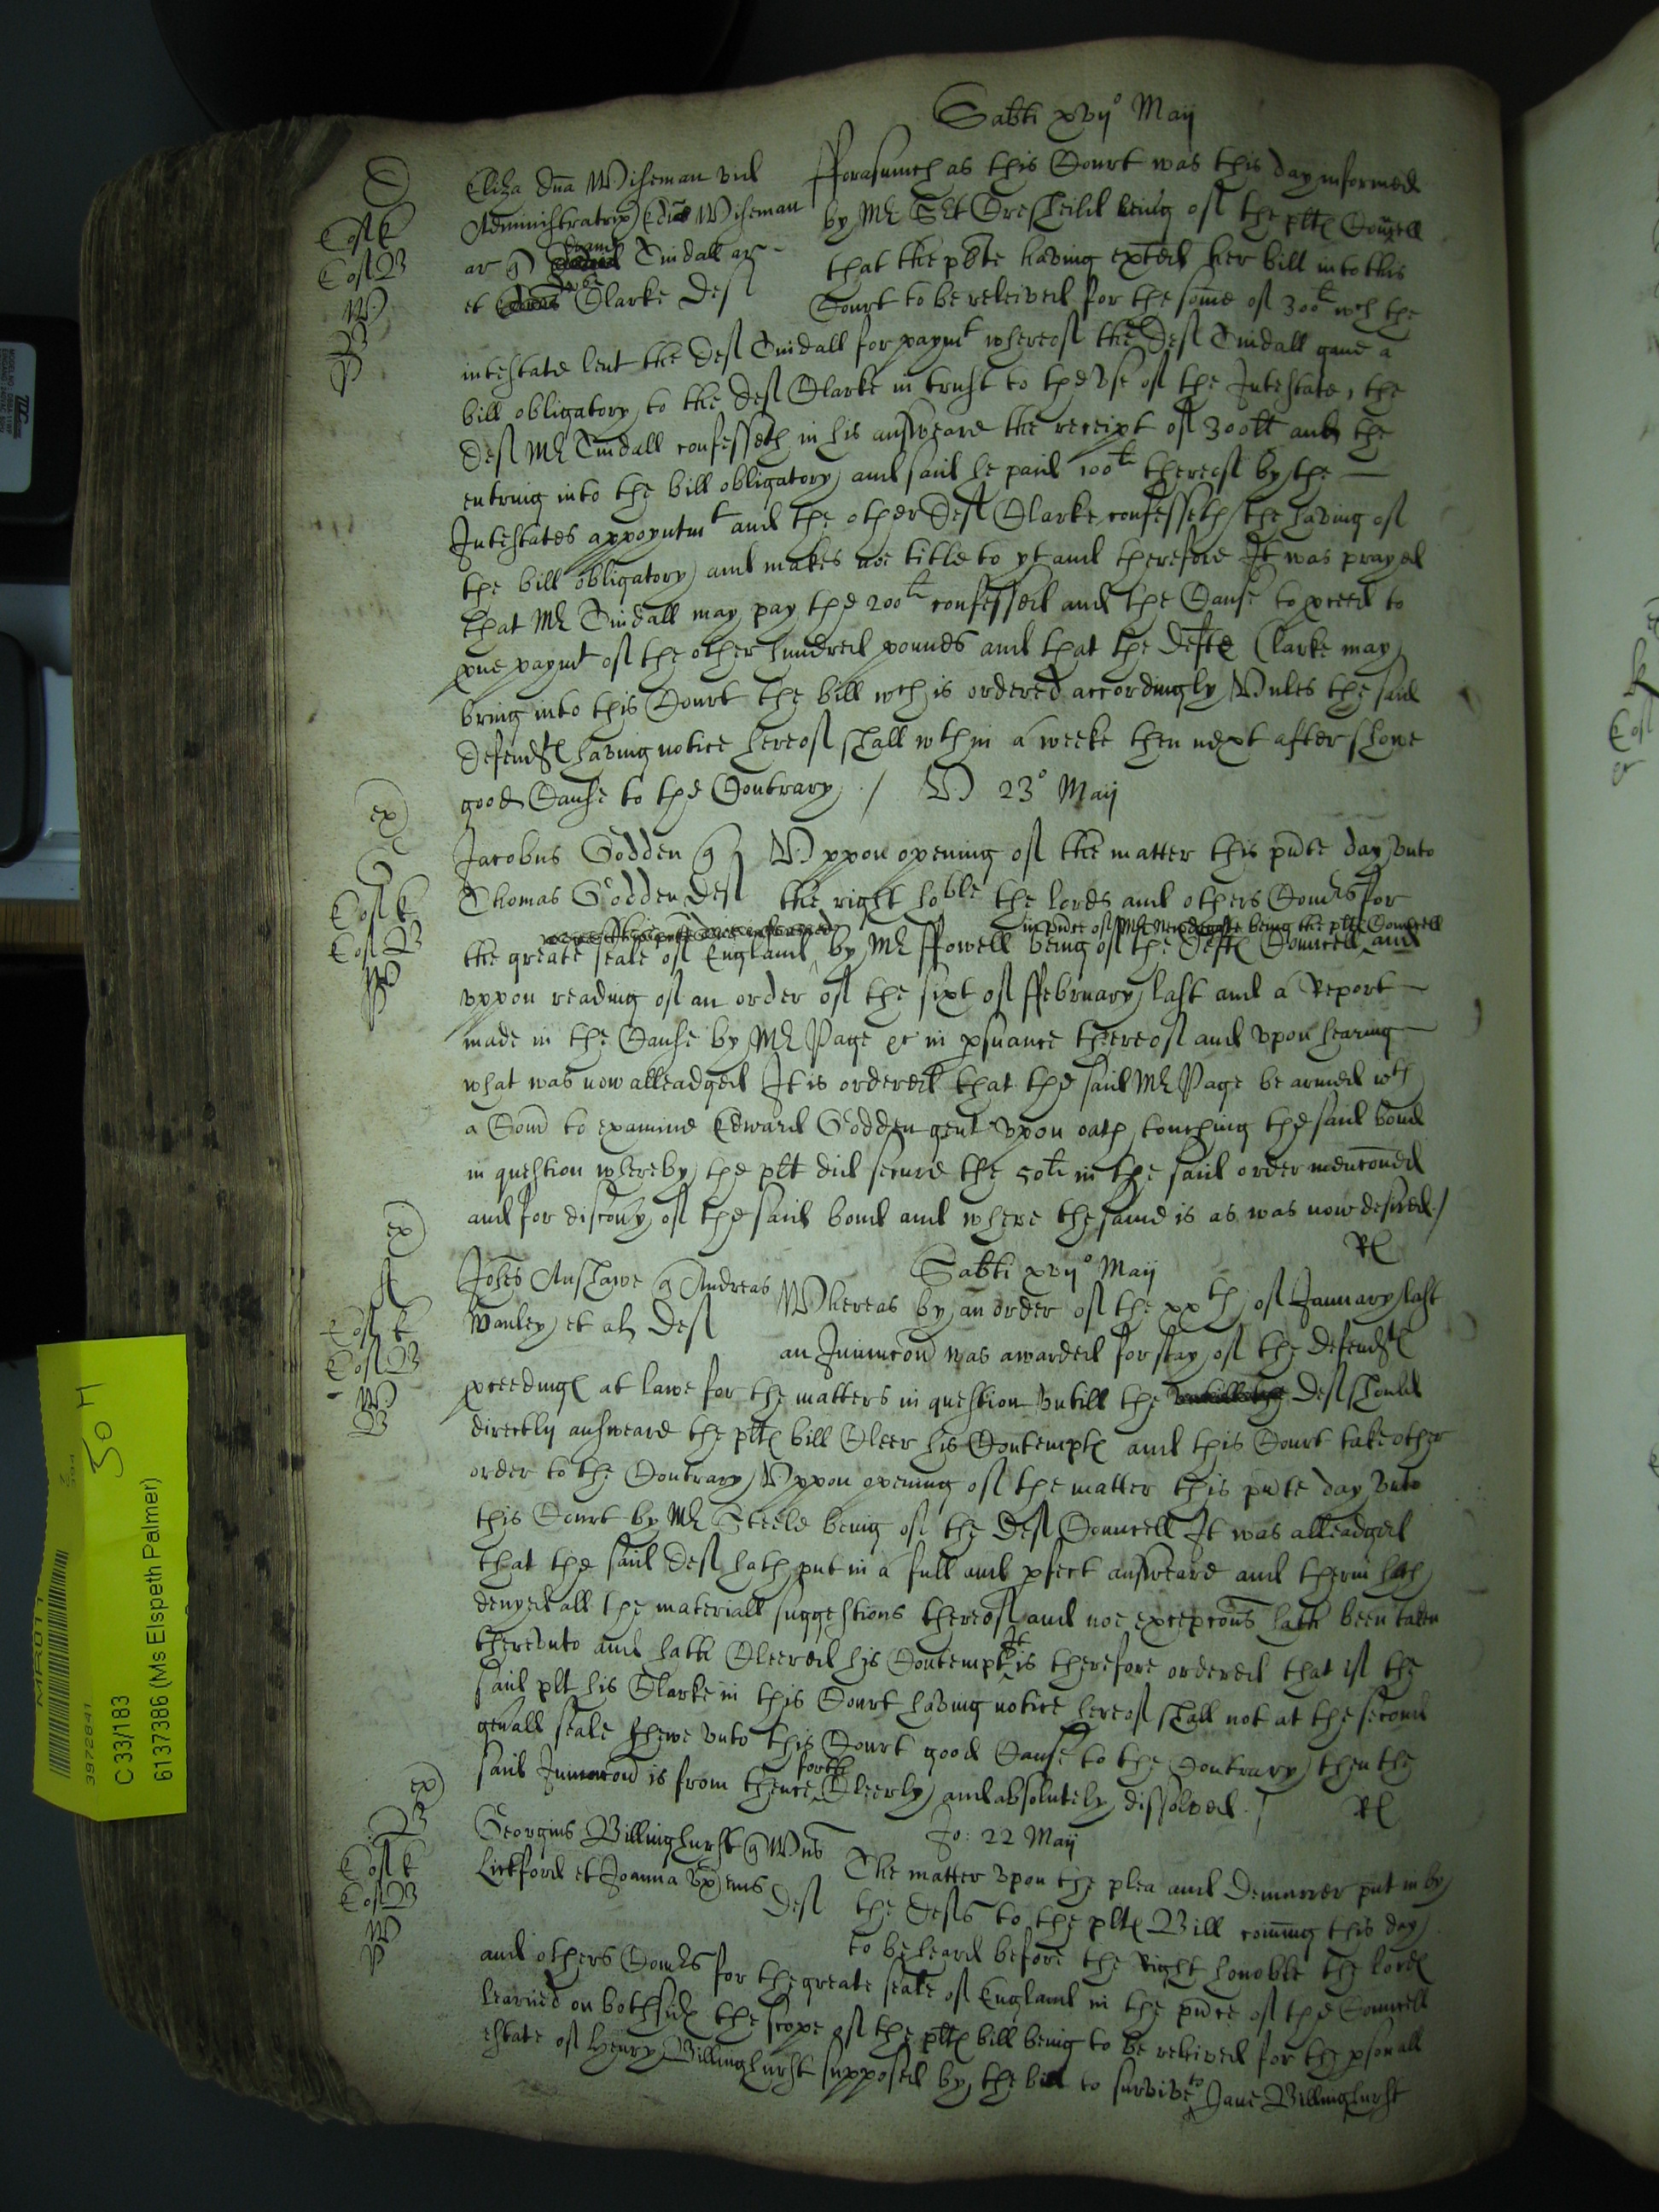 Sabti xvijo Maij
Eliza dna Wiseman vid
Administratrix Edi Wiseman
ar q Tindall ar
et Clarke Def
fforasmuch as this Court was this day informed
by Mr Sgt Cresheild being of the pltes Councell
that the plte having exted her bill into this
Court to be releived for the some of 300li wch the
intestate lent the Def Tindall for paymt whereof the Def Tindall gave a
bill obligatory to the Def Clarke in trust to the vse of the Intestate, the
Def Mr Tindall confesseth in his answeare the receipt of 300li and the
entring into the bill obligatory and said he paid 100li thereof by the
Intestates appoyntmt and the other Def Clarke confesseth the having of
the bill obligatory and makes noe title to yt and therefore It was prayed
that Mr Tindall may pay the 200li confessed and the Cause to pceed to
pve paymt of the other hundred pounds and that the Defte Clarke may
bring into this Court the bill wch is ordered accordingly Vnles the said
defendtes having notice hereof shall wthin a weeke then next after showe
good Cause to the Contrary ./ V 23o Maij
Jacobus Godden q
Thomas Godden Def
Vppon opening of the matter this pnte day vnto
the right hoble the lords and others Comrs for
in pnce of Mr being the pltes Councell
the greate seale of England by Mr ffowell being of the Deftes Councell and
vppon reading of an order of the sixt of ffebruary last and a Report
made in the Cause by Mr Page &c in psuance thereof and vpon hearing
what was now alleadged It is ordered that the said Mr Page be armed wth
a Com to examine Edward Godden gent vpon oath touching the said bond
in question whereby the plt did secure the 50li in the said order menconed
and for discovy of the said bond and where the same is as was now desired./
Rl
Sabti xvijo Maij
Johes Anslawe q Andreas
Wanley et al Def
Whereas by an order of the xxth of January last
an Iniunccon was awarded for stay of the defendtes
pceedinges at lawe for the matters in question vntill the Def should
directly answeare the pltes bill Cleer his Contemptes and this Court take other
order to the Contrary Vppon opening of the matter this pnte day vnto
this Court by Mr Steele being of the Def Councell It was alleadged
that the said Def hath put in a full and pfect answeare and therin hath
denyed all the materiall suggestions thereof and noe excepcons hath been taken
therevnto and hath Cleered his Contempt It is therefore ordered that if the
said plt his Clarke in this Court having notice hereof shall not at the second
genall seale shewe vnto this Court good Cause to the Contrary then the
said Iniunccon is from thence forth Cleerly and absolutely dissolved ./
Rl
Jo: 22 Maij
Georgius Billinghurst q Wus
Lickford et Joanna vx eius
Def
The matter vpon the plea and Demurrer put in by
the Defts to the pltes Bill coming this day
to be heard before the Right honoble the lordes
and others Comrs for the greate seale of England in the pnce of the Councell
learned on both sides the scope of the pltes bill being to be releived for the psonall
estate of Henry Billinghurst supposed by the bill to survive to Jane Billinghurst
C 33/183
6137386 (Ms Elspeth Palmer)
3972841
30 H